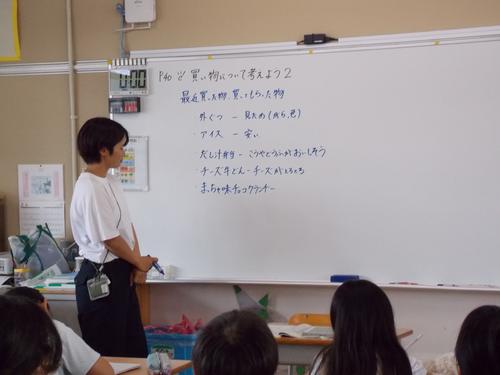 0:00
P40 買い物について考えよう2
最近買った物、買ってもらった物
外ぐつ － 見ため(がら、色)
・アイス － 安い
だし汁弁当 － こうやどうふがおいしそう
・チーズ牛どん － チーズがとろとろ
・まっちゃ味チョコクランチー